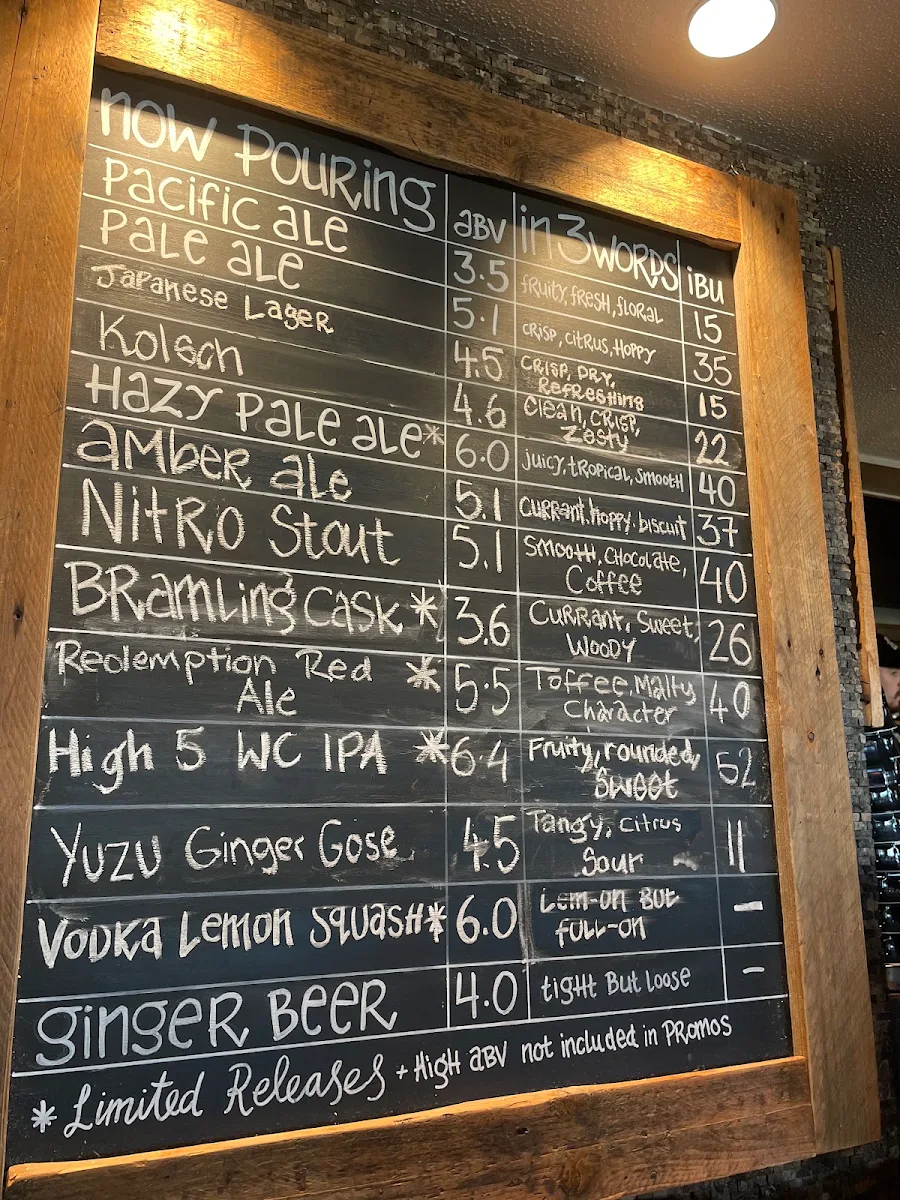 now Pouring aBV in 3 WORDS iBU
Pacific ale 3.5 fruity, fresh, floral 15
Pale ale 5.1 crisp, citrus, Hoppy 35
Japanese Lager 4.5 Crisp, Dry, Refreshing 15
Kolsch 4.6 Clean, Crisp, Zesty 22
Hazy Pale ale* 6.0 juicy, tropical, smooth 40
aMber ale 5.1 Currant, hoppy, biscuit 37
NitRO Stout 5.1 Smooth, Chocolate, Coffee 40
BRamling Cask * 3.6 Currant, Sweet, Woody 26
Redemption Red Ale * 5.5 Toffee, Malty Character 40
High 5 WC IPA * 6.4 Fruity, rounded, Sweet 52
Yuzu Ginger Gose 4.5 Tangy, citrus Sour 11
Vodka Lemon Squash* 6.0 Lem-on But full-on –
ginger Beer 4.0 tight But Loose –
* Limited Releases + High aBV not included in Promos